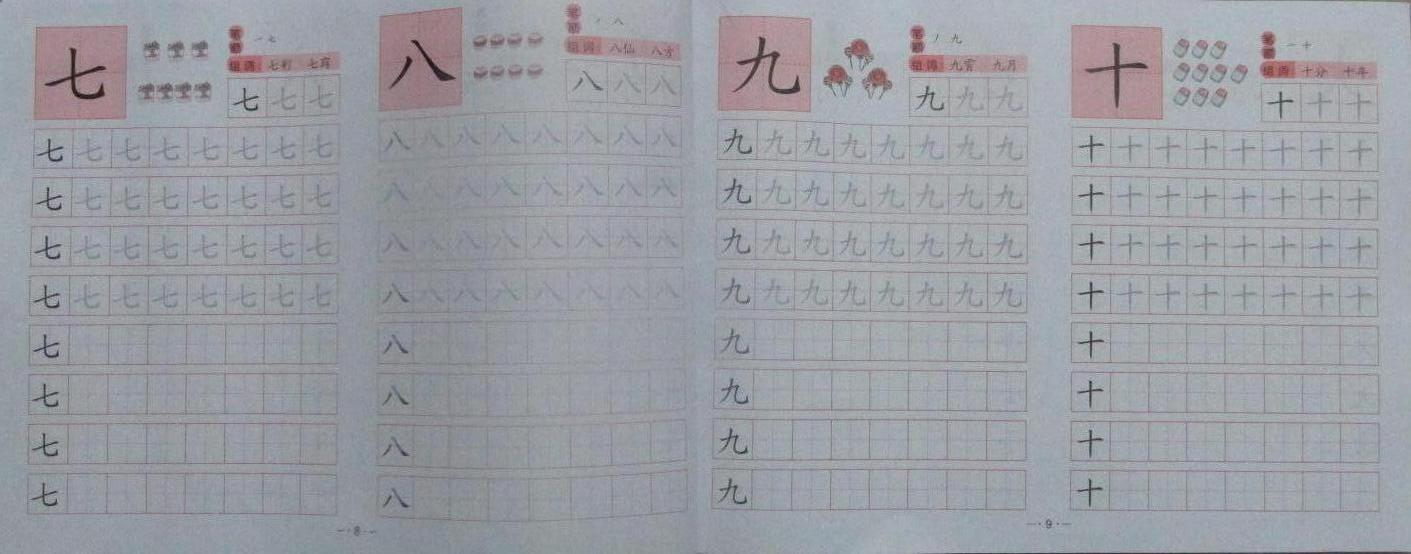 七
笔顺 一 七
组词 七彩 七窍
七 七 七
七 七 七 七 七 七 七 七
七 七 七 七 七 七 七 七
七 七 七 七 七 七 七 七
七 七 七 七 七 七 七 七
七
七
七
七
八
笔顺 丿 八
组词 八仙 八方
八 八 八
八 八 八 八 八 八 八 八
八 八 八 八 八 八 八 八
八 八 八 八 八 八 八 八
八 八 八 八 八 八 八 八
八
八
八
八
—·8·—
九
笔顺 丿 九
组词 九霄 九月
九 九 九
九 九 九 九 九 九 九 九
九 九 九 九 九 九 九 九
九 九 九 九 九 九 九 九
九 九 九 九 九 九 九 九
九
九
九
九
十
笔顺 一 十
组词 十分 十年
十 十 十
十 十 十 十 十 十 十 十
十 十 十 十 十 十 十 十
十 十 十 十 十 十 十 十
十 十 十 十 十 十 十 十
十
十
十
十
—·9·—